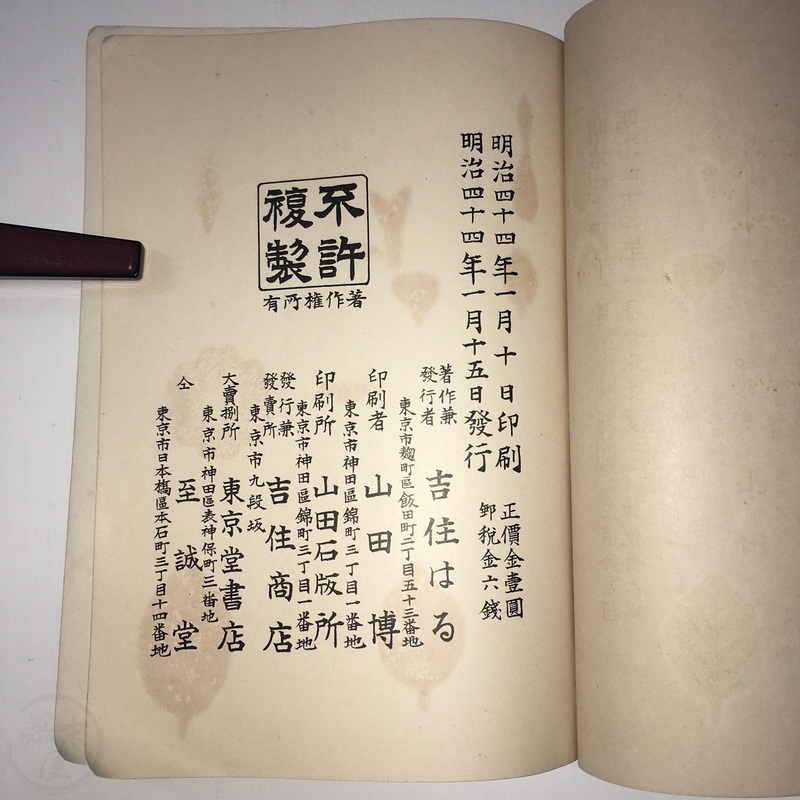 明治四十四年一月十日印刷
明治四十四年一月十五日發行
正價金壹圓
郵稅金六錢
不許
複製
著作權所有
著作兼
發行者
吉住はる
東京市麴町區飯田町二丁目五十三番地
印刷者
山田博
東京市神田區錦町三丁目一番地
印刷所
山田石版所
東京市神田區錦町三丁目一番地
發行兼
發賣所
吉住商店
東京市九段坂
大賣捌所
東京堂書店
東京市神田區表神保町三番地
仝
至誠堂
東京市日本橋區本石町三丁目十四番地